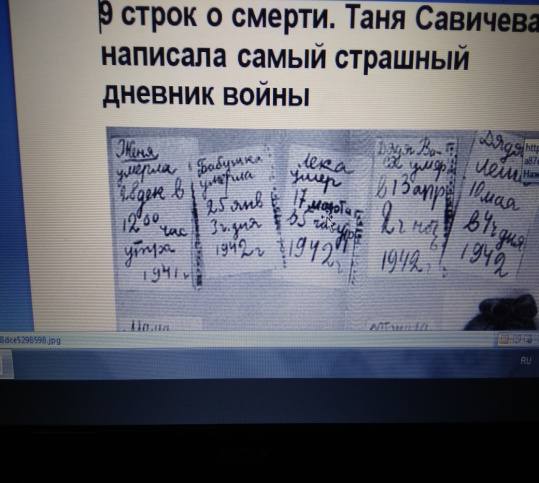 9 строк о смерти. Таня Савичева
написала самый страшный
дневник войны
Женя
умерла
28 дек в
12 00 час
утра
1941 г
Бабушка
умерла
25 янв
3 ч. дня
1942 г
Лека
умер
17 марта
в 5 час утр
1942 г
Дядя Ва-
ся умер
в 13 апр
2 ч ноч
1942 г
Дядя
Леша
10 мая
в 4 ч дня
1942
Мама
8dce5298598.jpg
RU